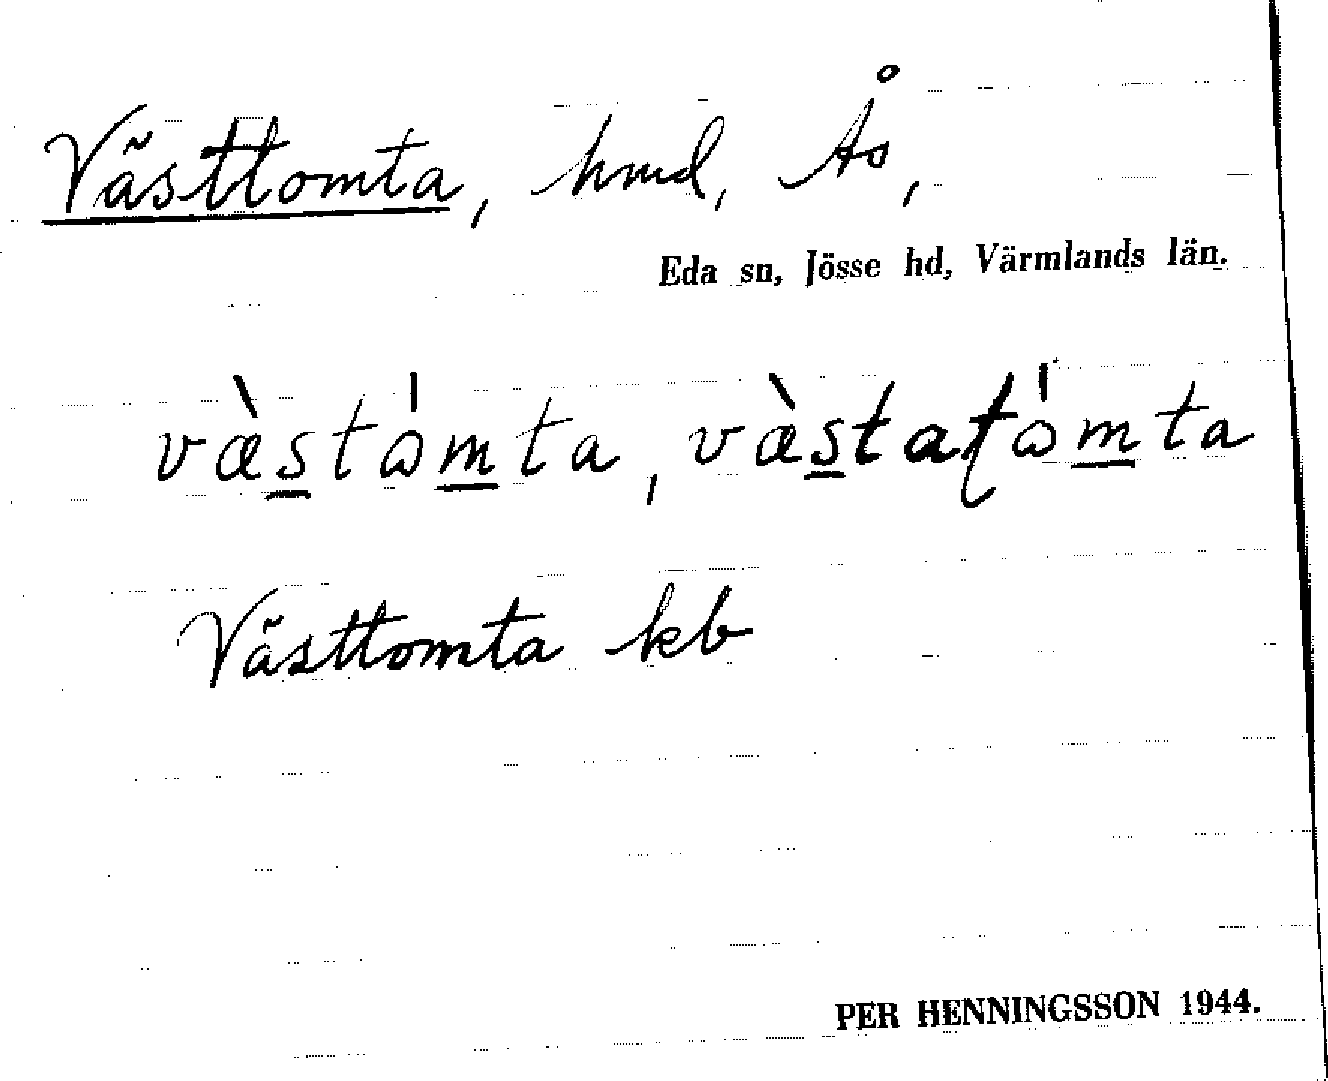 Västtomta, hmd, Ås,
Eda sn, Jösse hd, Värmlands län.
væ̀stɷ́mta, væ̀statɷ́mta
Västtomta kb
PER HENNINGSSON 1944.